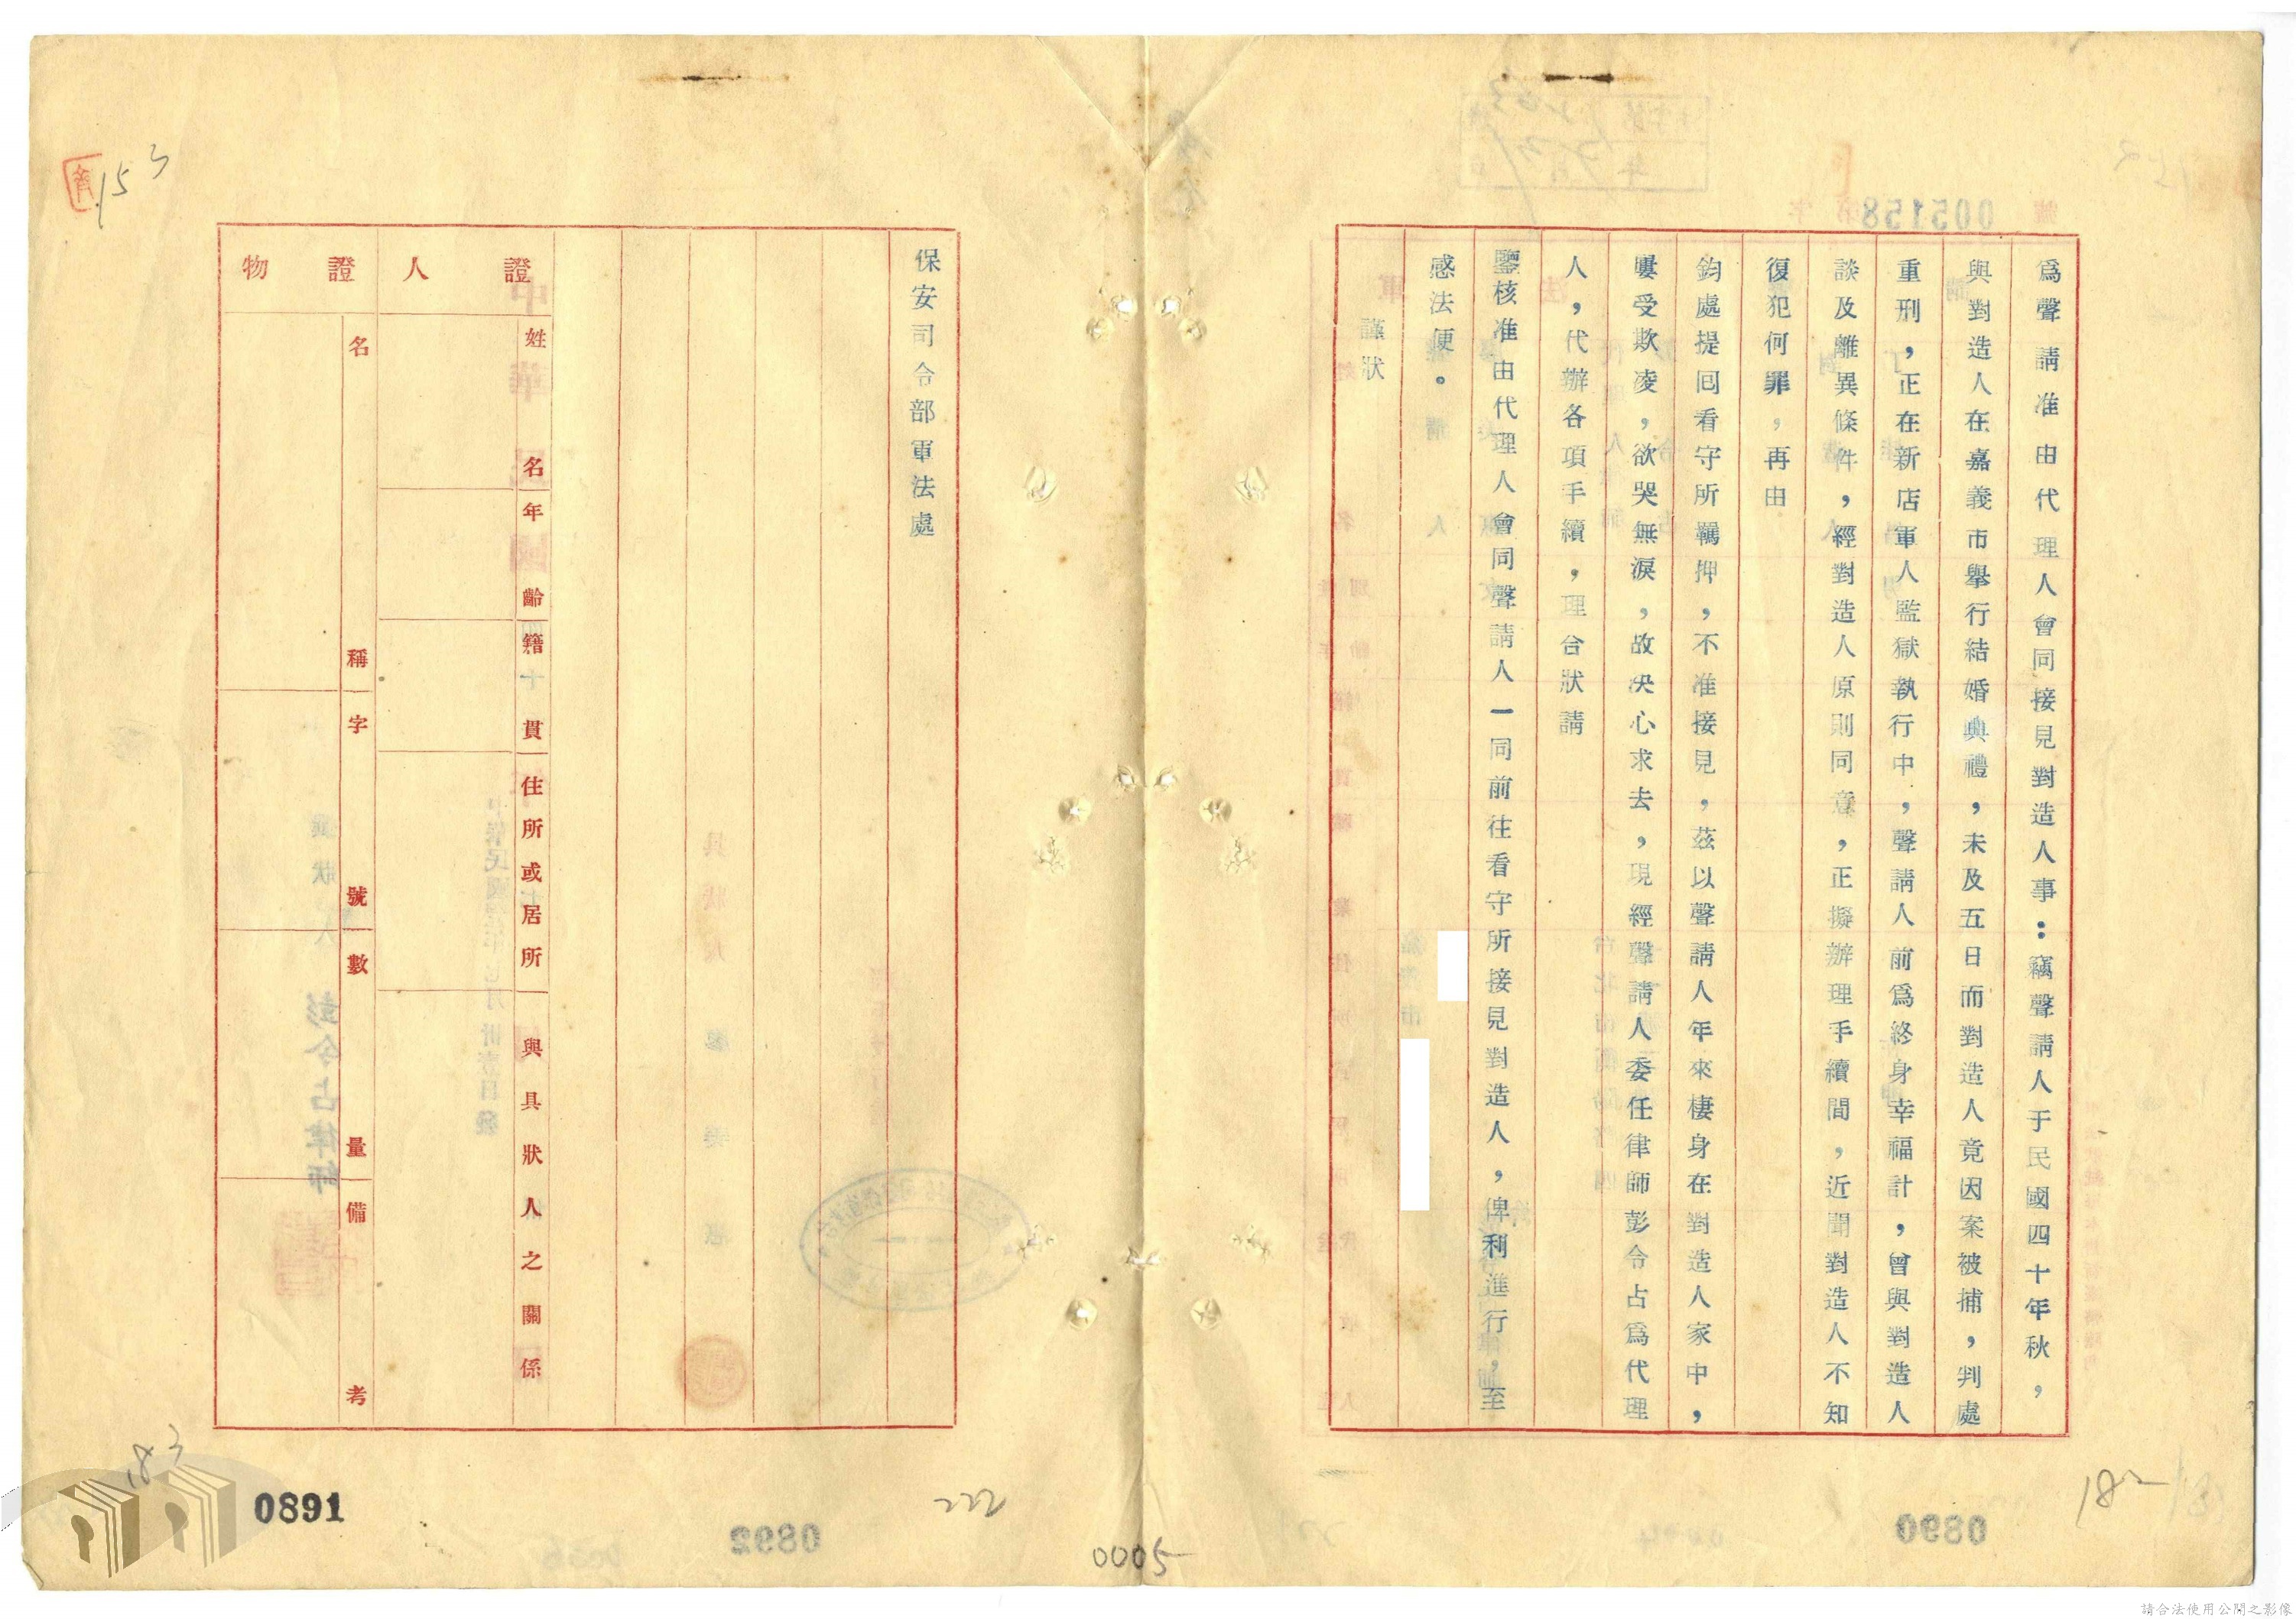 爲聲請准由代理人會同接見對造人事：竊聲請人于民國四十年秋，
與對造人在嘉義市擧行結婚典禮，未及五日而對造人竟因案被捕，判處
重刑，正在新店軍人監獄執行中，聲請人前爲終身幸福計，曾與對造人
談及離異條件，經對造人原則同意，正擬辦理手續間，近聞對造人不知
復犯何罪，再由
鈞處提回看守所羈押，不准接見，茲以聲請人年來棲身在對造人家中，
屢受欺凌，欲哭無淚，故决心求去，現經聲請人委任律師彭令占爲代理
人，代辦各項手續，理合狀請
鑒核准由代理人會同聲請人一同前往看守所接見對造人，俾利進行，至
感法便。
謹狀
保安司令部軍法處
證人
姓名
年齡
籍貫
住所或居所
與具狀人之關係
證物
名稱
字號
數量
備考
153
183
0891
222
0005
182
請合法使用公開之影像